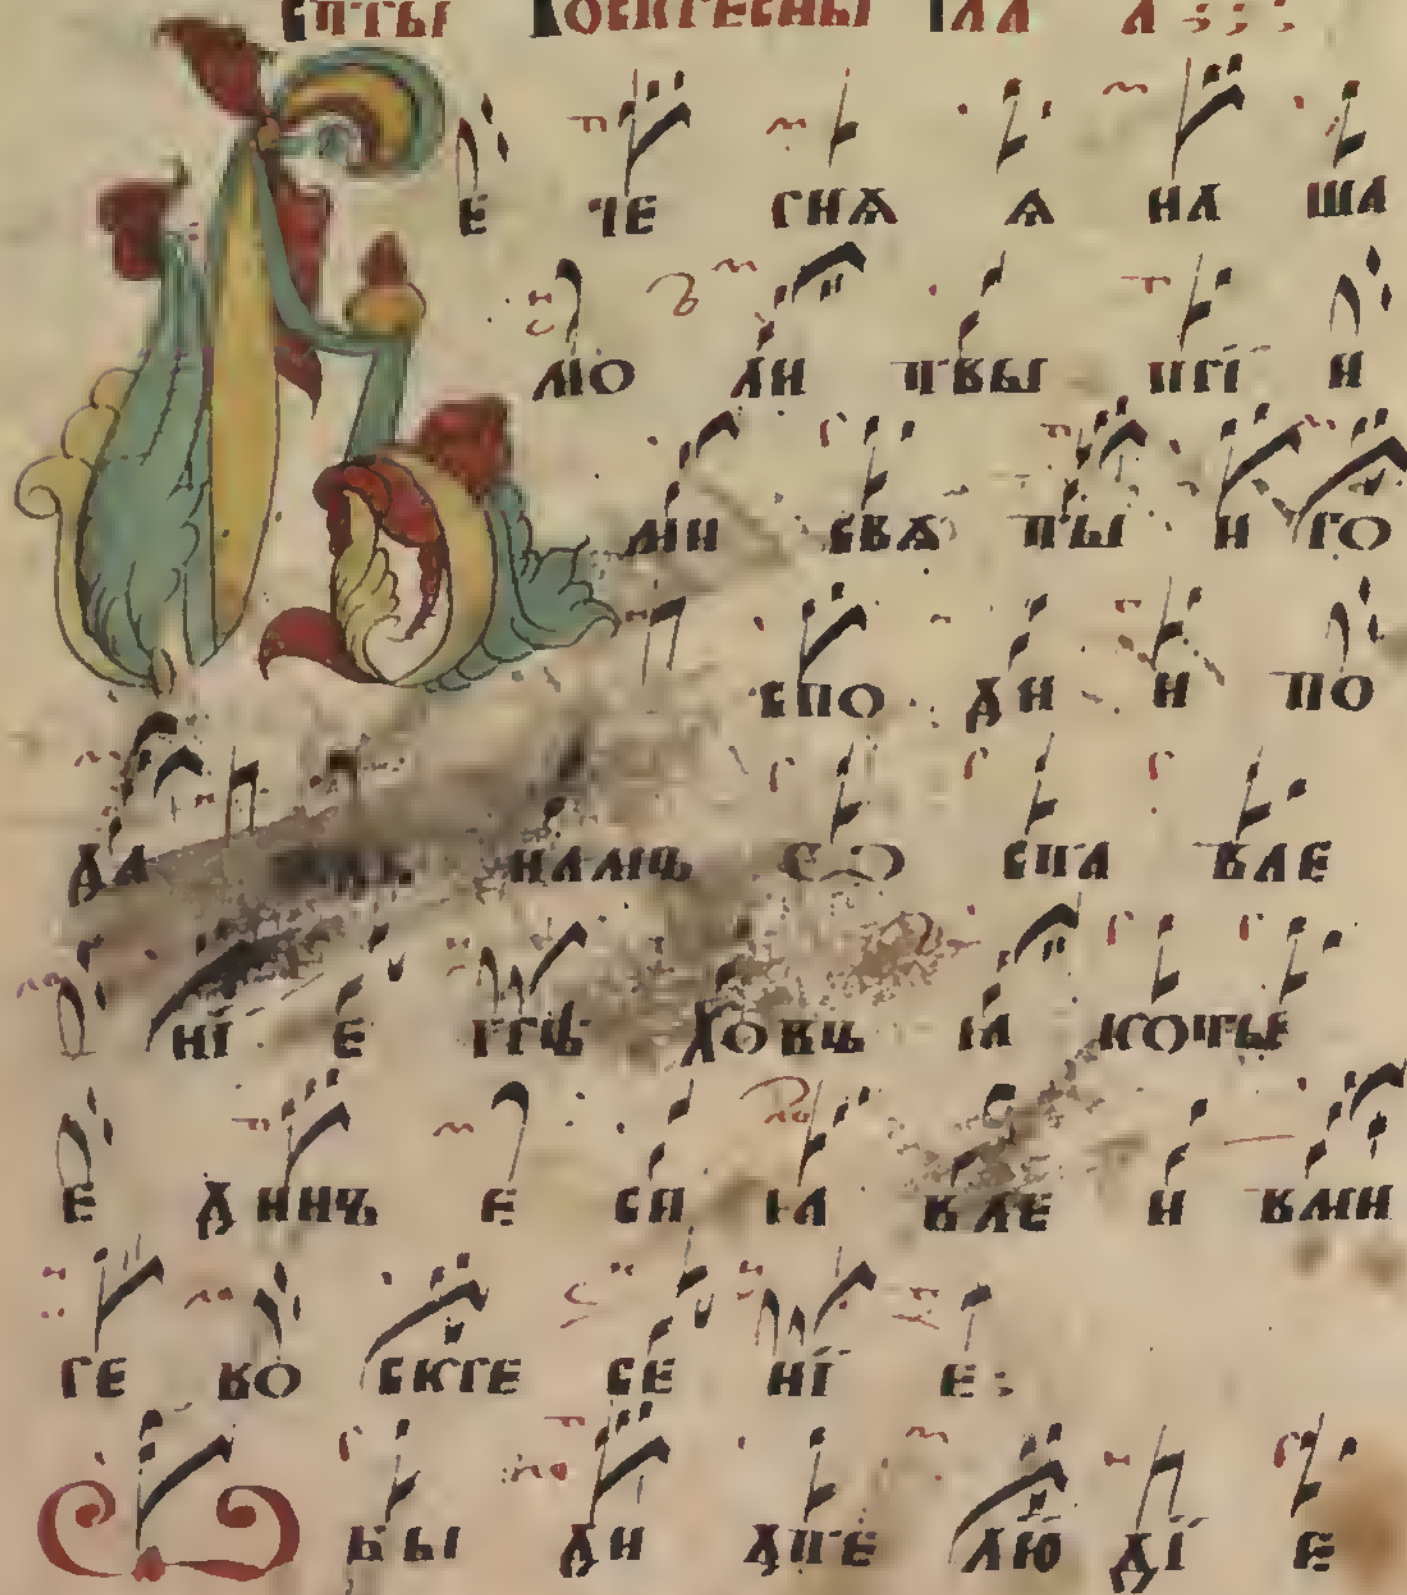 стъı воскресны гла а
е че рнѧ ѧ на ша
мо ли твы прї и
ми свѧ тъı и го
спо ди и по
да намъ со ста вле
нї е грѣ ховъ ꙗ котъı
е динъ е си ꙗ вле и вми
ре во скре се нї е
бы ди дпе лю дї е